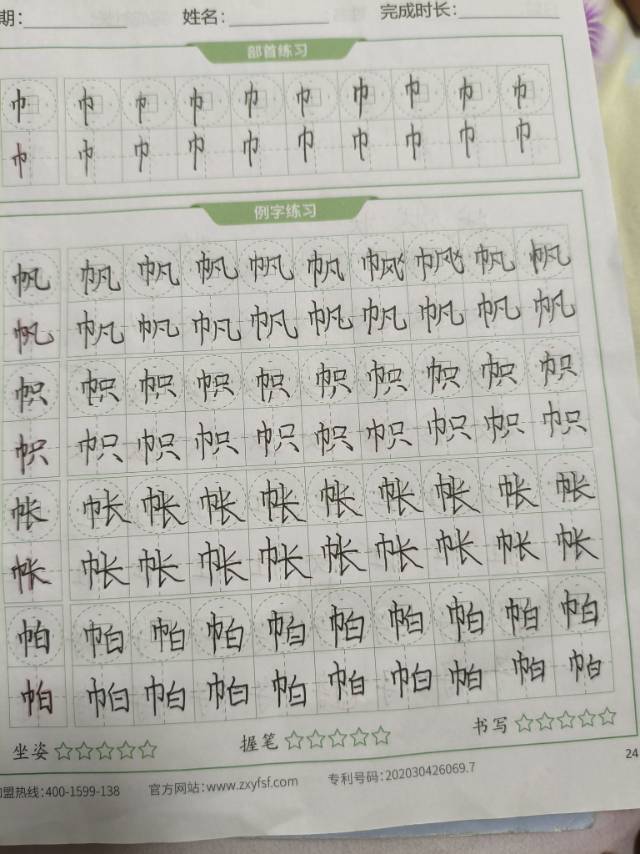 期： 姓名： 完成时长：
部首练习
巾 巾 巾 巾 巾 巾 巾 巾 巾 巾
巾 巾 巾 巾 巾 巾 巾 巾 巾 巾
例字练习
帆 帆 帆 帆 帆 帆 帆 帆 帆 帆
帆 帆 帆 帆 帆 帆 帆 帆 帆 帆
帜 帜 帜 帜 帜 帜 帜 帜 帜 帜
帜 帜 帜 帜 帜 帜 帜 帜 帜 帜
帐 帐 帐 帐 帐 帐 帐 帐 帐 帐
帐 帐 帐 帐 帐 帐 帐 帐 帐 帐
帕 帕 帕 帕 帕 帕 帕 帕 帕 帕
帕 帕 帕 帕 帕 帕 帕 帕 帕 帕
坐姿☆☆☆☆☆ 握笔☆☆☆☆☆ 书写☆☆☆☆☆
盟热线：400-1599-138 官方网站：www.zxyfsf.com 专利号码：202030426069.7 24